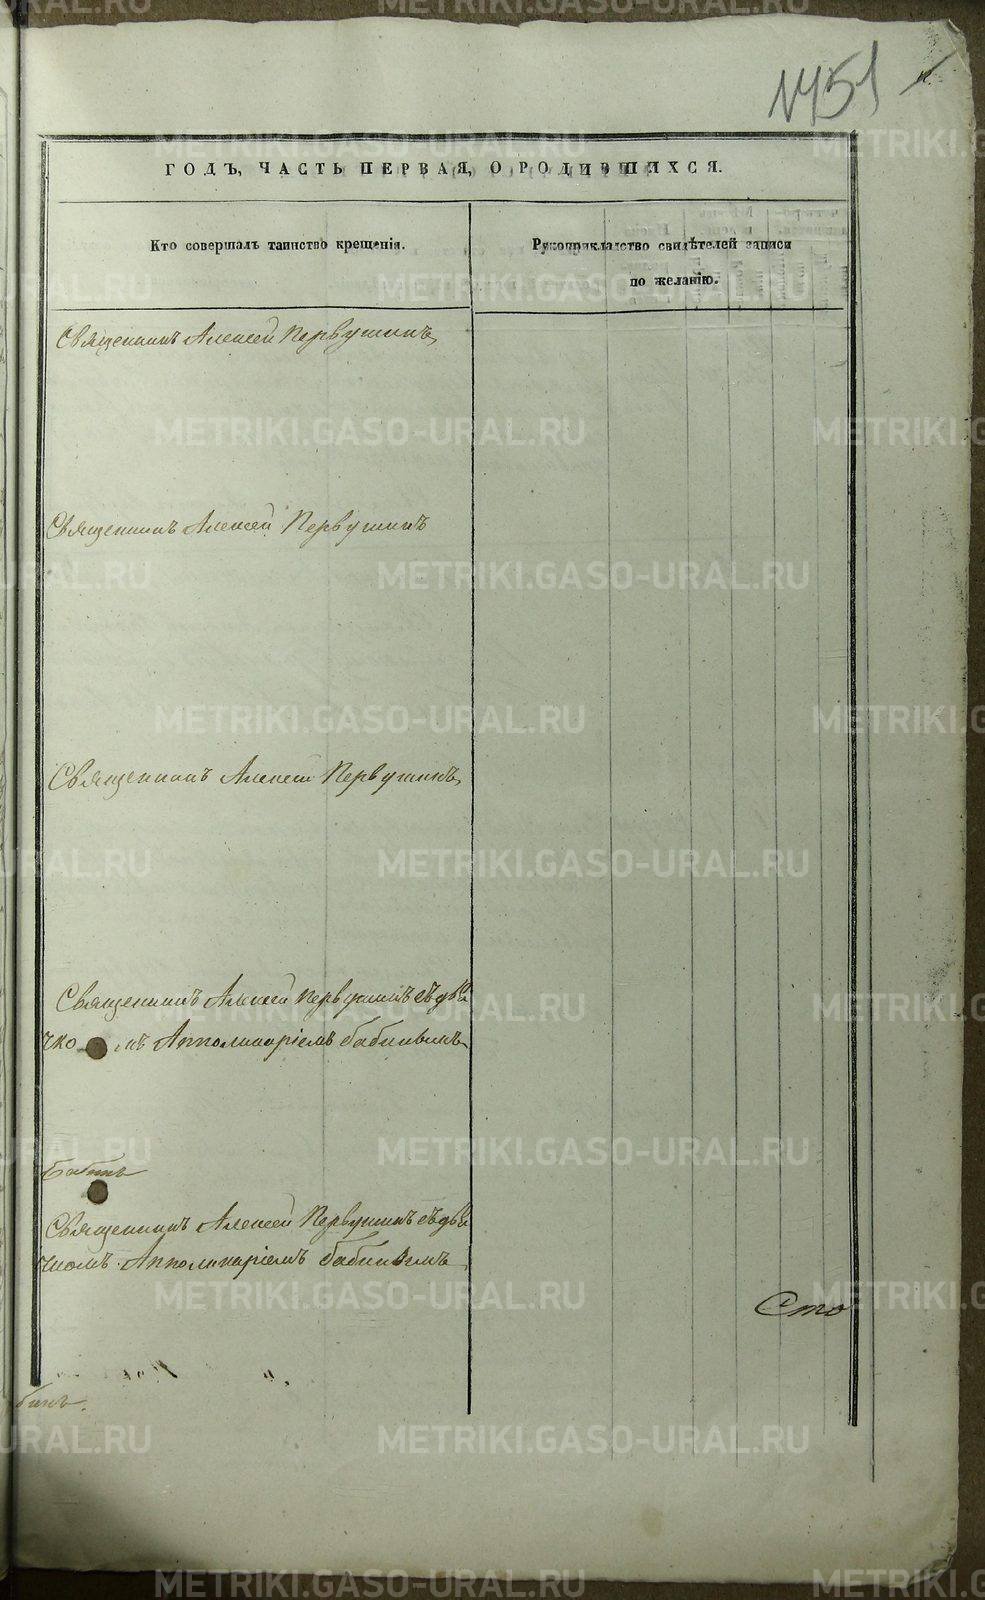 №451
ГОДЪ, ЧАСТЬ ПЕРВАЯ, О РОДИВШИХСЯ.
Кто совершалъ таинство крещенія.
Рукоприкладство свидѣтелей записи
по желанію.
Священникъ Алексѣй Первушинъ
Священникъ Алексѣй Первушинъ
Священникъ Алексѣй Первушинъ
Священникъ Алексѣй Первушинъ съ дья
чко мъ Апполинаріемъ Бабинымъ
Священникъ Алексѣй Первушинъ съ дья
чкомъ Апполинаріемъ Бабинымъ
Сто
бинъ.
METRIKI.GASO-URAL.RU